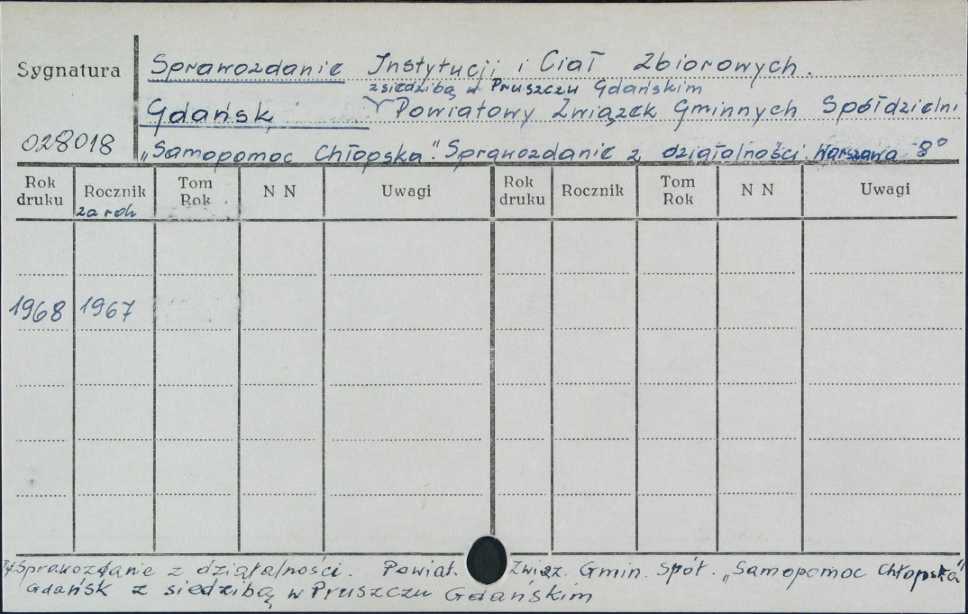 Sygnatura
Sprawozdanie Instytucji i Ciał Zbiorowych.
z siedzibą w Pruszczu Gdańskim
Gdańsk Powiatowy Związek Gminnych Spółdzielni
028018
„Samopomoc Chłopska". Sprawozdanie z działalności. Warszawa 8°
Rok druku Rocznik Tom Rok N N Uwagi Rok druku Rocznik Tom Rok N N Uwagi
za rok
1968 1967
Sprawozdanie z działalności. Powiat. Związ. Gmin. Spół. „Samopomoc Chłopska"
Gdańsk z siedzibą w Pruszczu Gdańskim